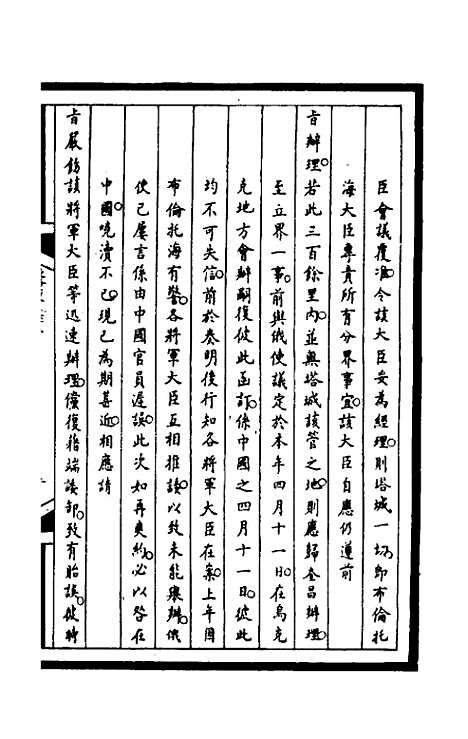 臣會議覆准令該大臣妥為經理則塔城一切卽布倫托
海大臣專責所有分界事宜該大臣自應仍遵前
旨辦理若此三百餘里內並無塔城該管之地則應歸奎昌辦理
至立界一事前與俄使議定於本年四月十一日在烏克
克地方會辦嗣復彼此函訂係中國之四月十一日彼此
均不可失信前於奏明後行知各將軍大臣在案上年因
布倫托海有警各將軍大臣互相推諉以致未能舉辦俄
使已屢言係由中國官員遲誤此次如再爽約必以咎在
中國嘵瀆不已現已為期甚近相應請
旨嚴飭該將軍大臣等迅速辦理儻復藉端諉卸致有貽誤彼時